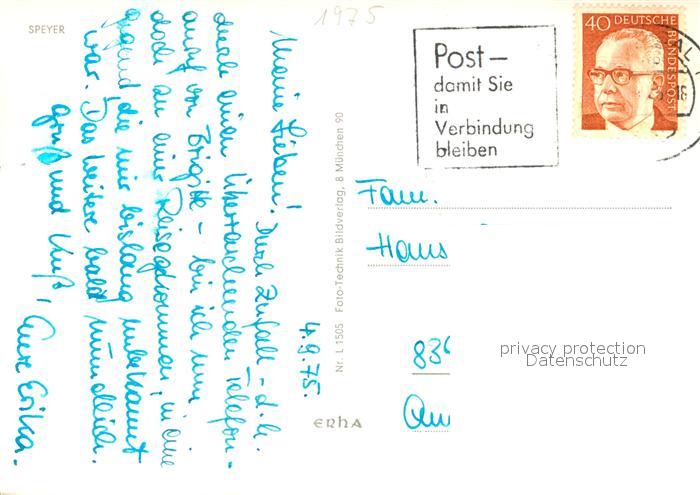 SPEYER
1975
4.9.75.
Meine Lieben! Durch Zufall - d. h.
durch einen überraschenden Telefon-
anruf von Brigitte - bin ich nun
doch zu einer Reise gekommen, in eine
Gegend die mir bislang unbekannt
war. Das weitere bald mündlich.
Gruß und Kuß,
Eure Erika.
Nr. L 1505 Foto-Technik Bildverlag, 8 München 90
ERHA
Post –
damit Sie
in
Verbindung
bleiben
40 DEUTSCHE
BUNDESPOST
Fam.
Hans
836
privacy protection
Datenschutz